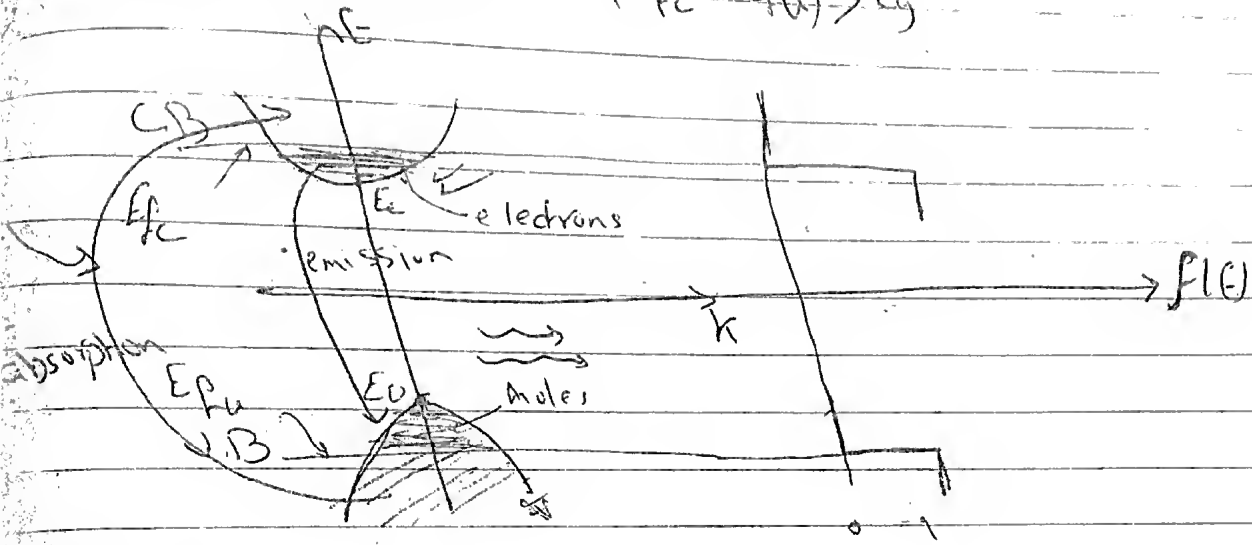 E
CB
E_fc
E_c
electrons
emission
f(E)
k
absorption
E_fv
E_v
holes
V.B
0 1